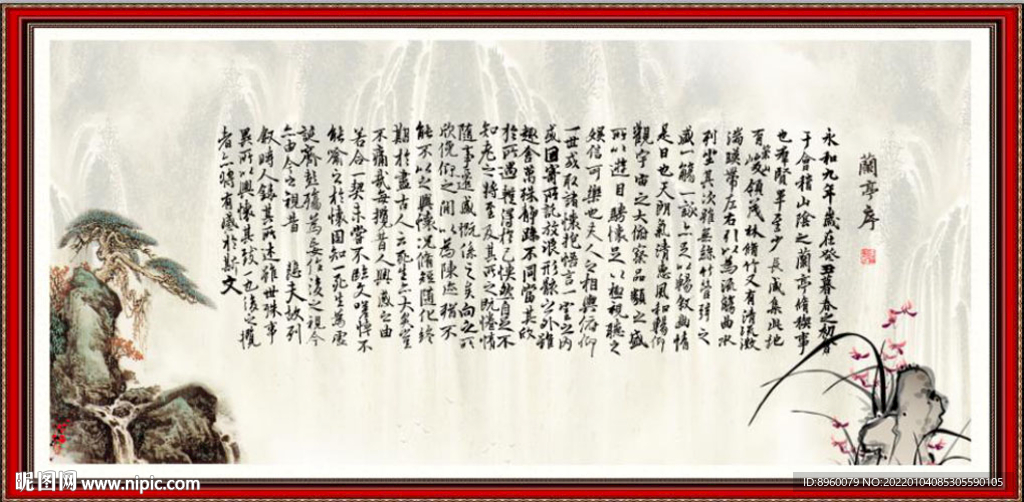 蘭亭序
永和九年歲在癸丑暮春之初會
于會稽山陰之蘭亭脩稧事
也羣賢畢至少長咸集此地
有崇山峻領茂林脩竹又有清流激
湍暎帶左右引以為流觴曲水
列坐其次雖無絲竹管弦之
盛一觴一詠亦足以暢敘幽情
是日也天朗氣清惠風和暢仰
觀宇宙之大俯察品類之盛
所以遊目騁懷足以極視聽之
娛信可樂也夫人之相與俯仰
一世或取諸懷抱悟言一室之內
或因寄所託放浪形骸之外雖
趣舍萬殊靜躁不同當其欣
於所遇蹔得於己怏然自足不
知老之將至及其所之既惓情
隨事遷感慨係之矣向之所
欣俛仰之閒以為陳迹猶不
能不以之興懷況脩短隨化終
期於盡古人云死生亦大矣豈
不痛哉每攬昔人興感之由
若合一契未嘗不臨文嗟悼不
能喻之於懷固知一死生為虛
誕齊彭殤為妄作後之視今
亦由今之視昔 悲夫故列
敘時人錄其所述雖世殊事
異所以興懷其致一也後之攬
者亦將有感於斯文
昵图网 www.nipic.com
ID:8960079 NO:20220104085305590105